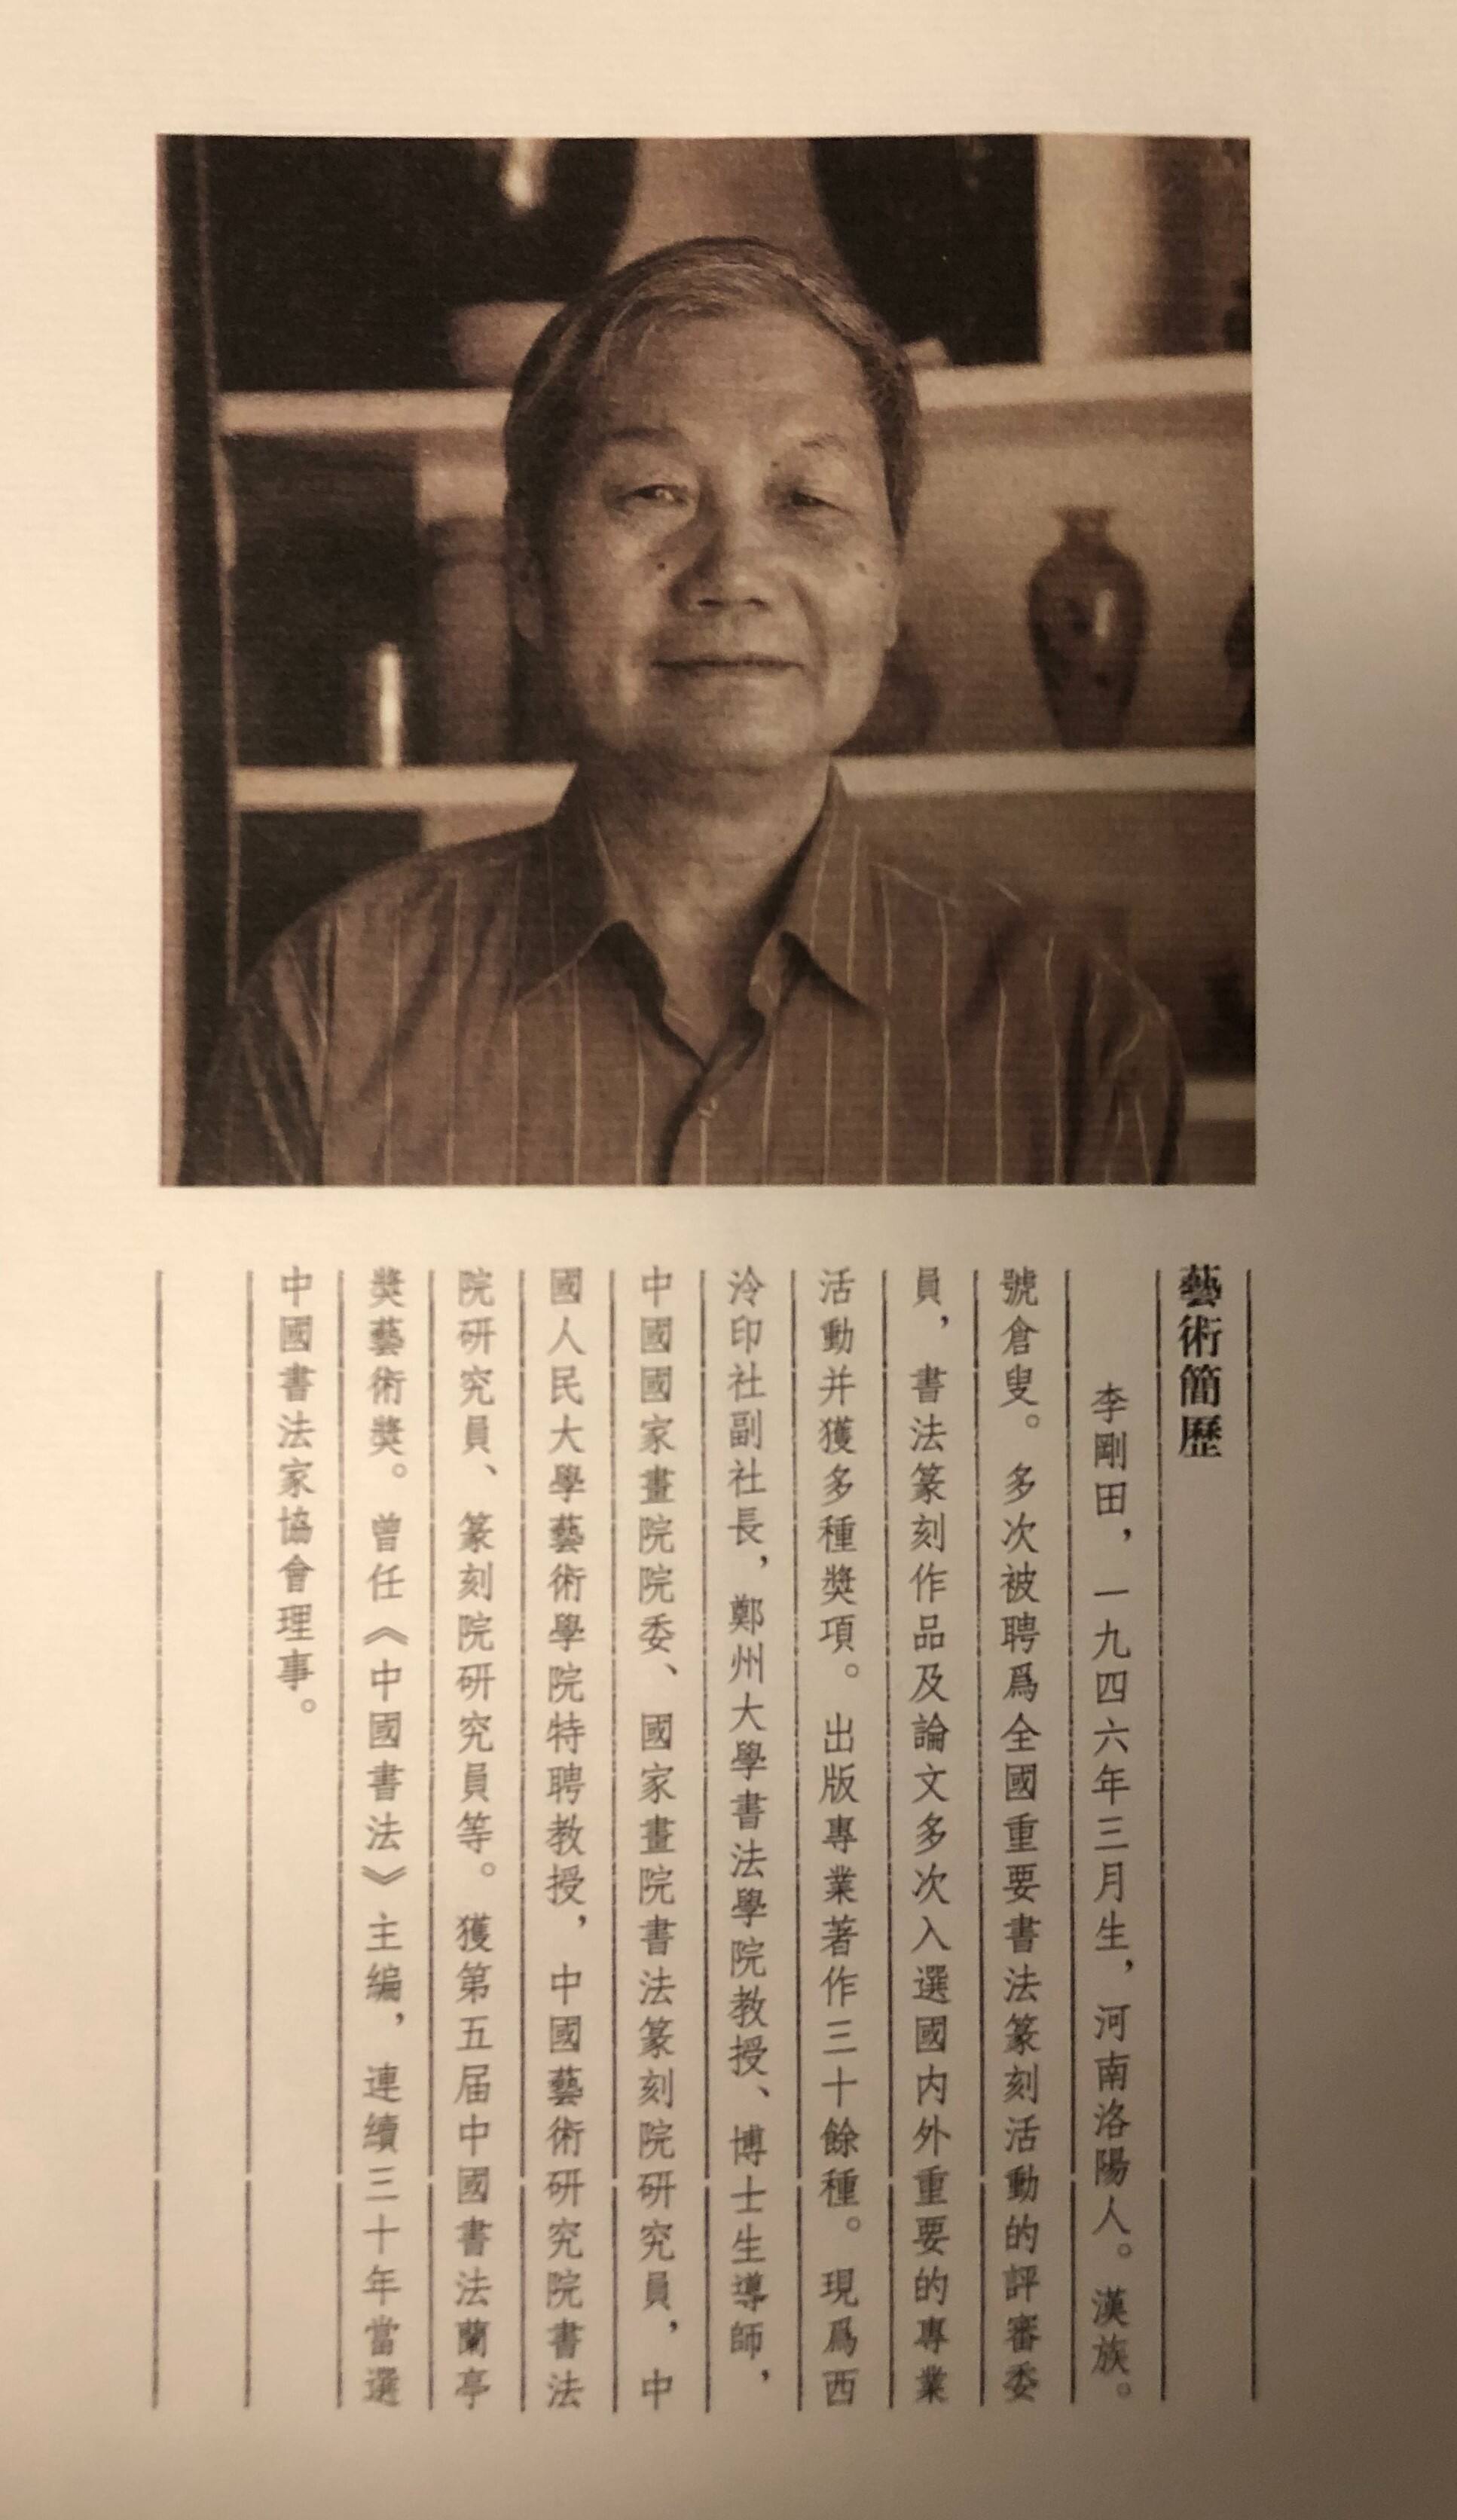 藝術簡歷
李剛田，一九四六年三月生，河南洛陽人。漢族。
號倉叟。多次被聘爲全國重要書法篆刻活動的評審委
員，書法篆刻作品及論文多次入選國内外重要的專業
活動并獲多種獎項。出版專業著作三十餘種。現爲西
泠印社副社長，鄭州大學書法學院教授、博士生導師，
中國國家畫院院委、國家畫院書法篆刻院研究員，中
國人民大學藝術學院特聘教授，中國藝術研究院書法
院研究員、篆刻院研究員等。獲第五届中國書法蘭亭
獎藝術獎。曾任《中國書法》主編，連續三十年當選
中國書法家協會理事。